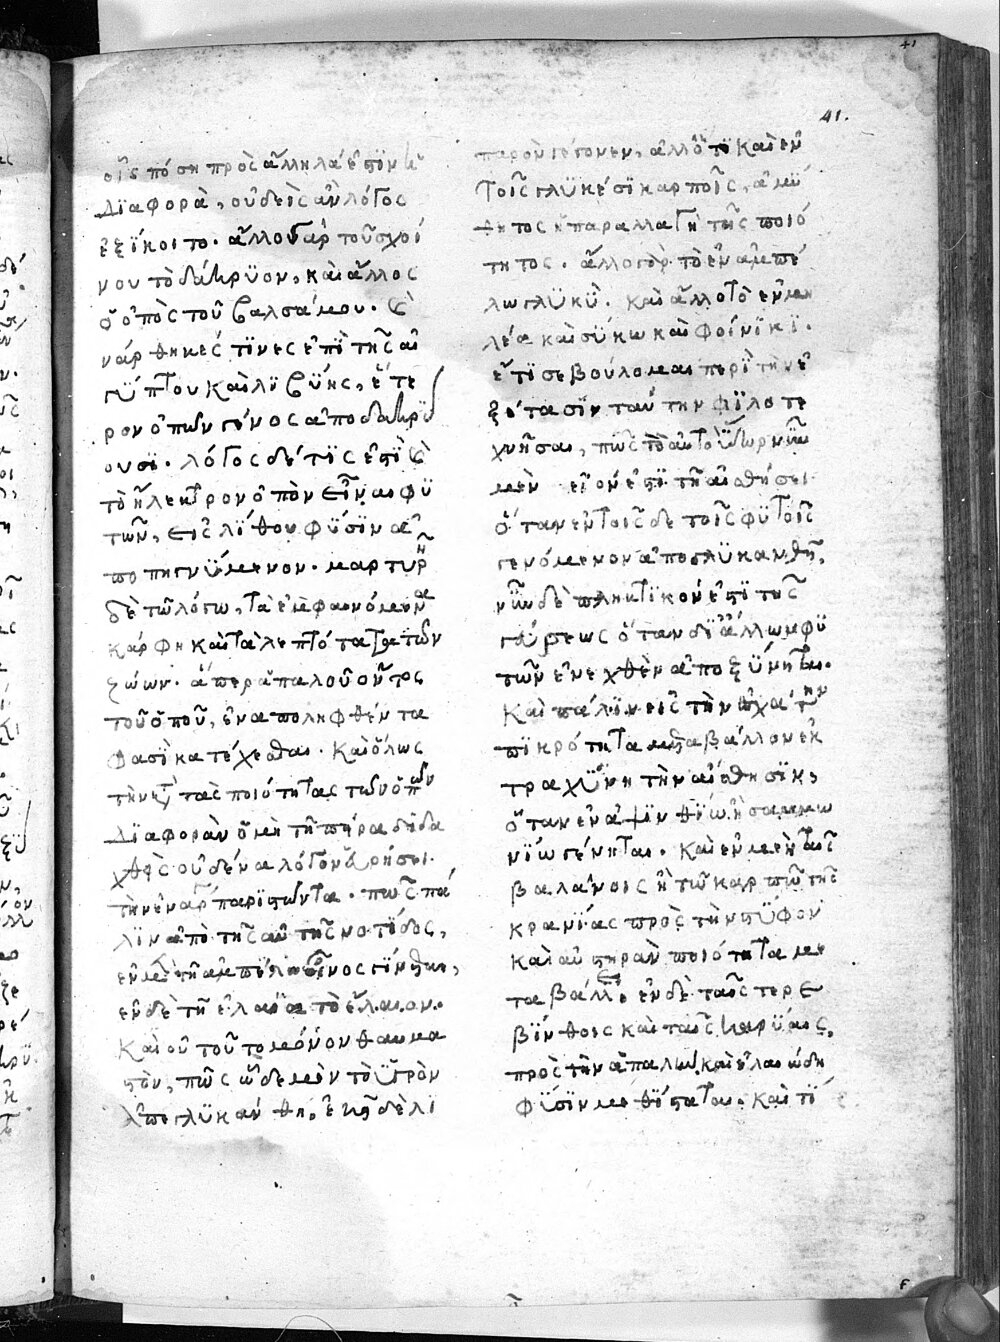 οἷς πόση πρὸς ἄλληλά ἐστὶν ἡ
διαφορὰ, οὐδεὶς ἂν λόγος
ἐξίκοιτο. ἄλλο γὰρ τοῦ σχοί
νου τὸ δάκρυον, καὶ ἄλλος
ὁ ὀπὸς τοῦ βαλσάμου. καὶ
νάρθηκές τινες ἐπὶ τῆς αἰ
γύπτου καὶ λιβύης, ἕτε
ρον ὀπῶν γένος ἀποδακρύ
ουσι. λόγος δέ τίς ἐπὶ καὶ
τὸ ἤλεκτρον ὀπὸν εἶναι φυ
τῶν, εἰς λίθου φύσιν ἀ
ποπηγνύμενον. μαρτυρῆ
δὲ τῶ λόγω, τὰ ἐμφαινόμενα
κάρφη καὶ τὰ λεπτότατα τῶν
ζώων. ἅπερ ἁπαλοῦ ὄντος
τοῦ ὀποῦ, ἐναποληφθέντα
φασὶ κατέχεσθαι. καὶ ὅλως
τὴν κατὰ τὰς ποιότητας τῶν ὀπῶν
διαφορὰν ὁ μὴ τῆ πείρα διδα
χθεὶς οὐδένα λόγον εὑρήσει
τὴν ἐνάργειαν παριστῶντα. πῶς πά
λιν ἀπὸ τῆς αὐτῆς νοτίδος,
ἐν μὲν τῆ ἀμπέλω οἶνος γίνεται,
ἐν δὲ τῆ ἐλαία τὸ ἔλαιον.
καὶ οὐ τοῦτο μόνον θαυμα
στὸν, πῶς ὧδε μὲν τὸ ὑγρὸν
ἀπεγλυκάνθη, ἐκεῖ δὲ λι
παρὸν γέγονεν, ἀλλ' ὅτι καὶ ἐν
τοῖς γλυκέσι καρποῖς, ἀμύ
θητος ἡ παραλλαγὴ τῆς ποιό
τητος. ἄλλο γὰρ τὸ ἐν ἀμπέ
λω γλυκὺ. καὶ ἄλλο τὸ ἐν μη
λέα καὶ σύκω καὶ φοίνικι.
ἔτι σε βούλομαι περὶ τὴν ἐ
ξέτασιν ταύτην φιλοτε
χνῆσαι, πῶς τὸ αὐτὸ ὕδωρ νῦν
μὲν εἶον ἐπὶ τῆ αἰσθήσει
ὅταν ἐν τοῖς δε τοῖς φυτοῖς
γενόμενον ἀπογλυκανθῆ,
νῦν δὲ πληκτικόν ἐπὶ τῆς
γεύσεως ὅταν δι' ἄλλων φυ
τῶν ἐνεχθὲν ἀποξύνηται.
καὶ πάλιν εἰς τὴν ἐσχάτην
πικρότητα μεταβάλλον ἐκ
τραχύνη τὴν αἴσθησιν,
ὅταν ἐν ἀψινθίω ἢ σαμμω
νίω γένηται. καὶ ἐν μὲν ταῖς
βαλάνοις ἢ τῶ καρπῶ τῆς
κρανίας πρὸς τὴν στύφον
καὶ αὐστηρὰν ποιότητα με
ταβάλλει ἐν δὲ ταῖς τερε
βίνθοις καὶ ταῖς καρύαις,
πρὸς τὴν ἁπαλὴν καὶ ἐλαιώδη
φύσιν μεθίσταται. καὶ τί
41.